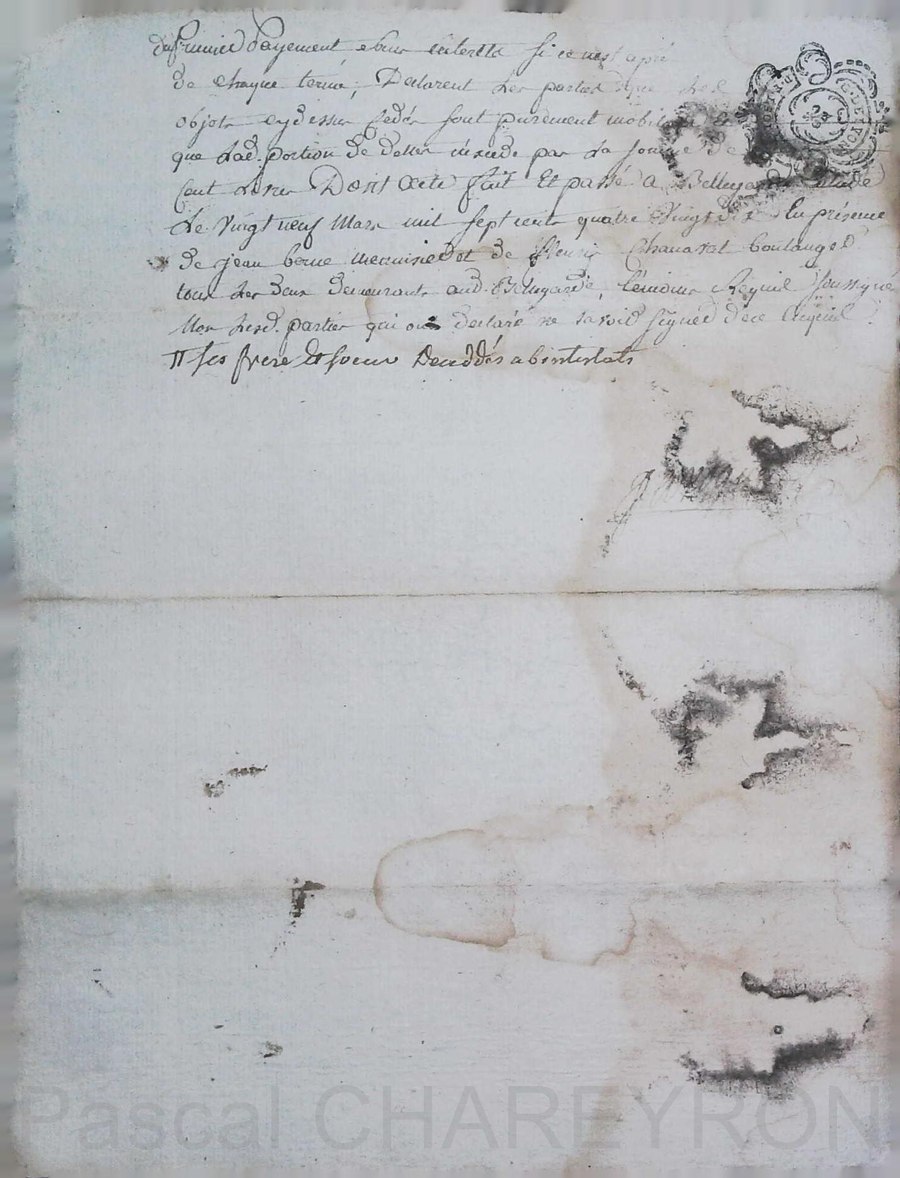 du premier payement et sans interets si ce n'est après
de chaque terme, Declarent les parties que les
objets cydessus cedés sont purement mobil
que lad. portion de dettes n'excede pas la somme de
cent livres Dont acte fait et passé a Bellegarde
le vingt neuf mars mil sept cents quatre vingt dix En présence
de jean berne menuisier et de fleury Chanavat boulanger
tous les deux demeurants aud. Bellegarde, témoins Requis soussignés
Non lesd. parties qui ont declaré ne savoir signer de ce Enquis.
ses frere et soeur Deceddés abintestats
Pascal CHAREYRON